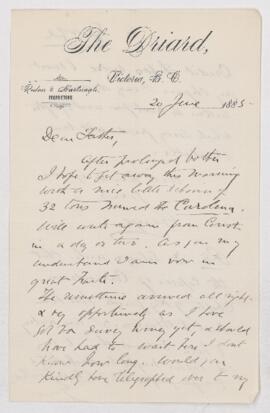 The Driard,
Victoria, B. C.
Redon & Hartnagle
PROPRIETORS
20 June 1885
Dear Father,
After prolonged bother
I hope to get away this morning
with a nice little schooner of
32 tons named the Carolena.
Will write again from Comox
in a day or two. As you may
understand I am now in
great haste.
The remittance arrived all right
& very opportunely as I have
got no Survey money yet, & should
have had to wait here I don't
know how long. Would you
kindly have telegraphed over to my